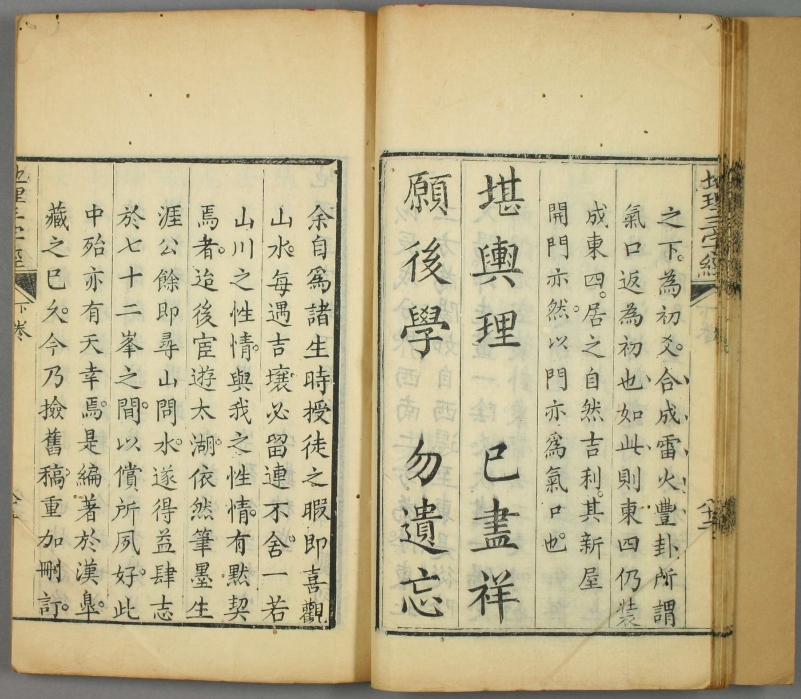 地理三字經
下卷
之下。為初爻。合成雷火豐卦。所謂
氣口返為初也。如此則東四仍裝
成東四。居之自然吉利。其新屋
開門亦然。以門亦為氣口也。
堪輿理 已盡祥
願後學 勿遺忘
余自爲諸生時授徒之暇即喜觀
山水。每遇吉壤必留連不舍一若
山川之性情。與我之性情。有默契
焉者。迨後宦遊太湖。依然筆墨生
涯公餘即尋山問水。遂得益肆志
於七十二峯之間。以償所夙好。此
中殆亦有天幸焉。是編著於漢臯。
藏之已久。今乃撿舊稿重加刪訂。
地理三字經
下卷